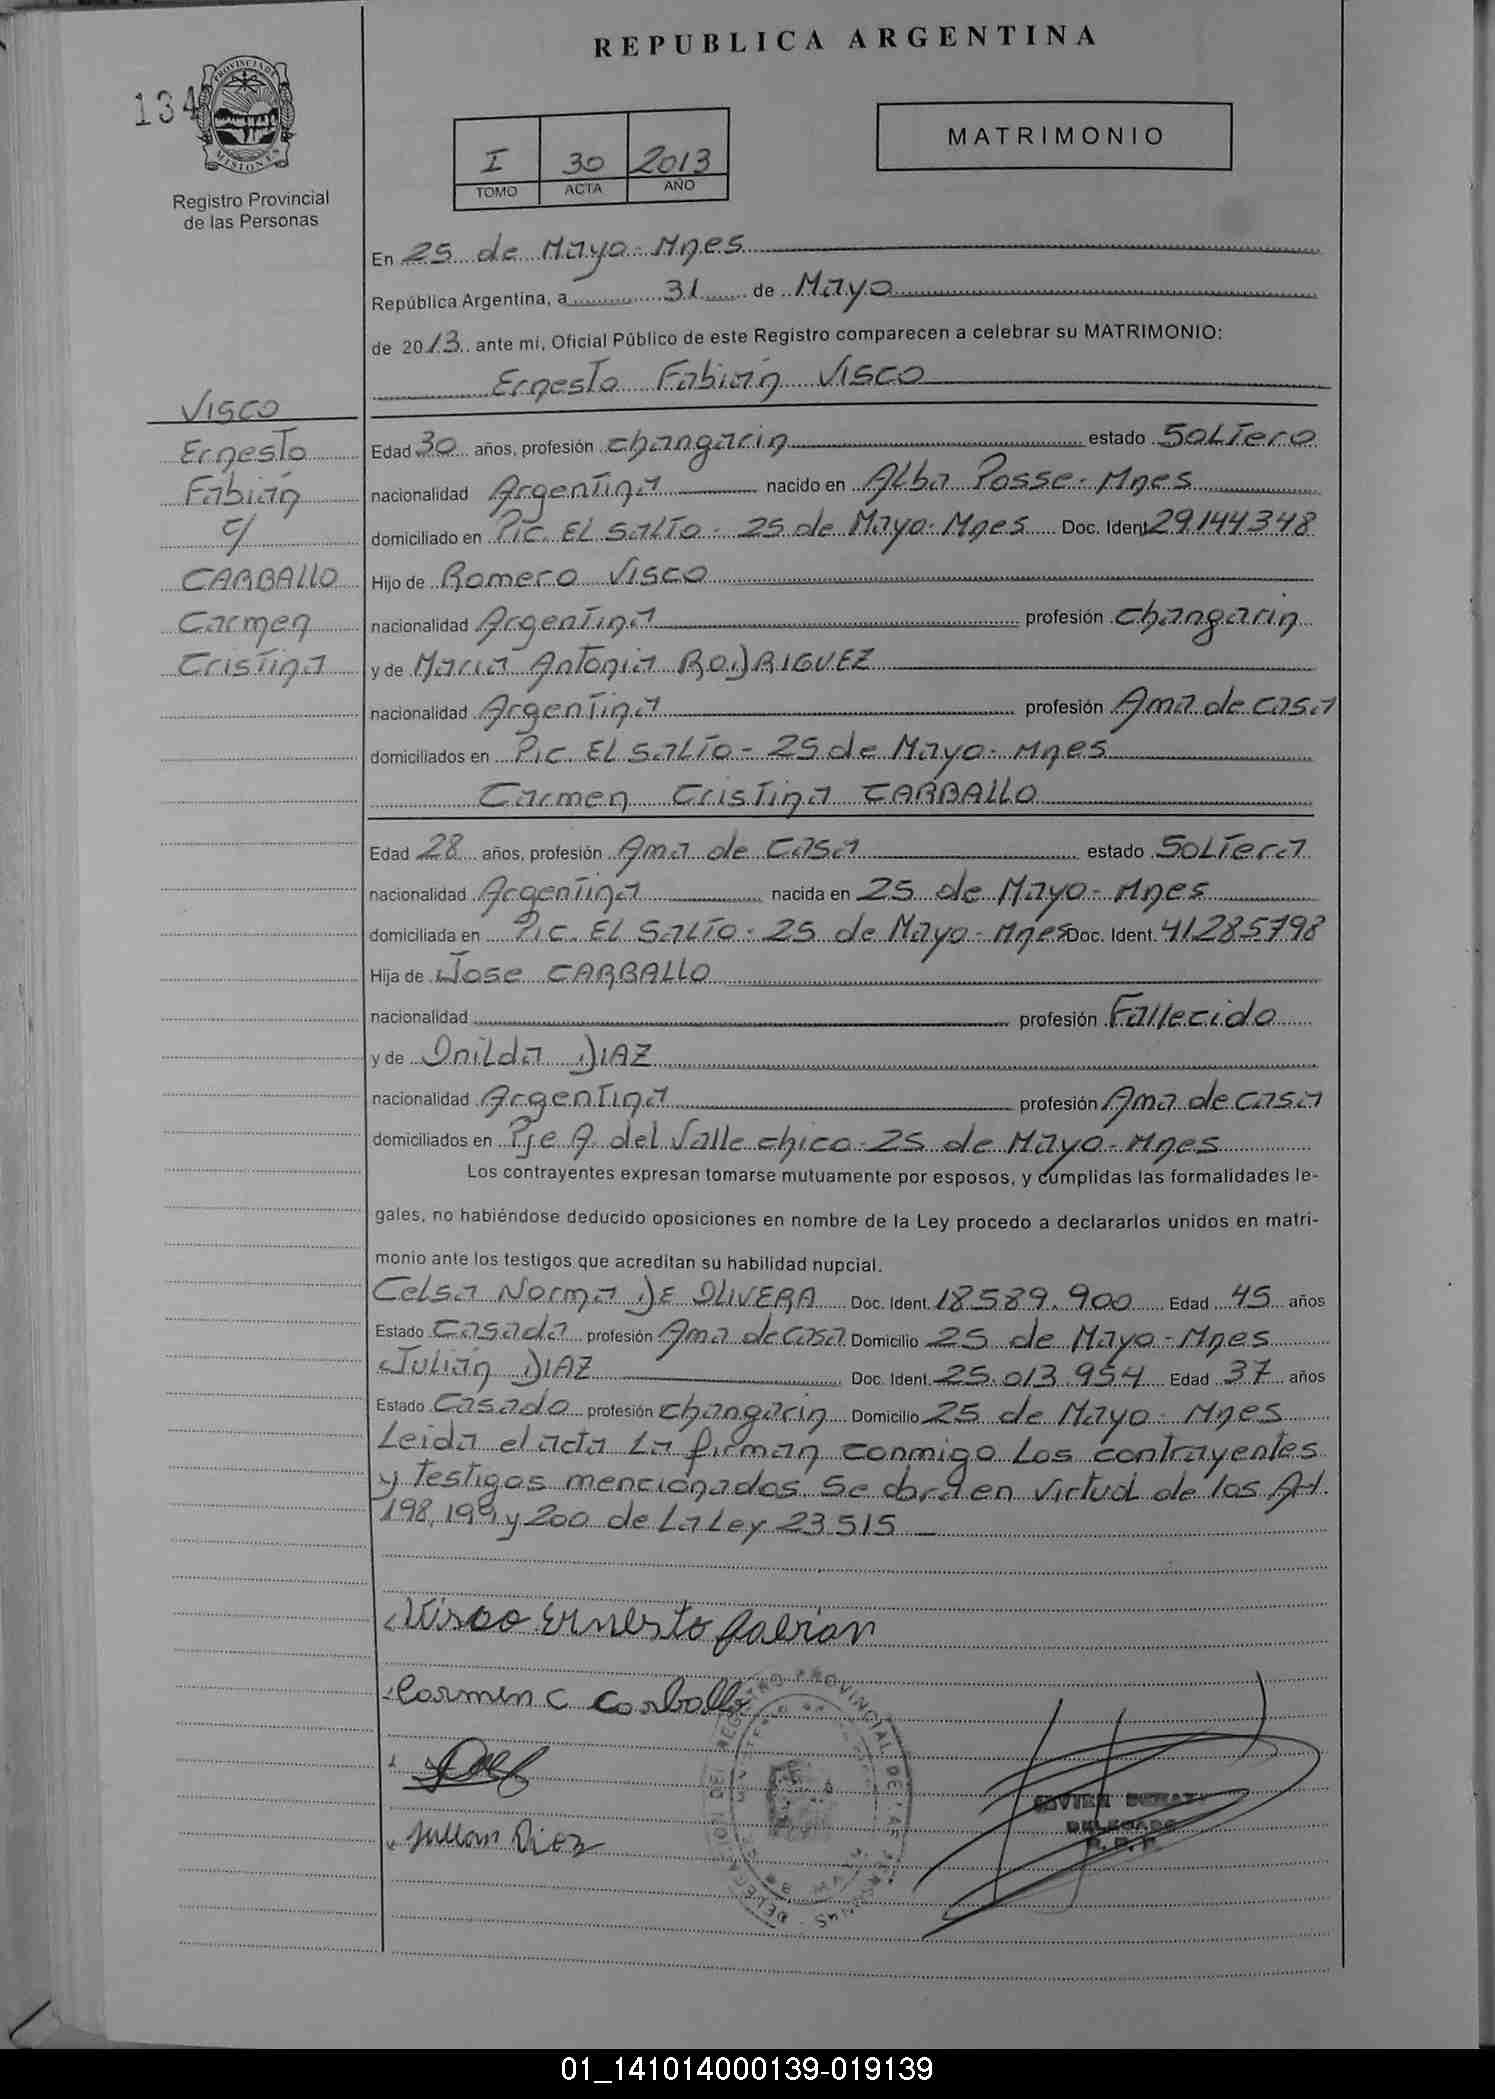 REPUBLICA ARGENTINA
134
PROVINCIA DE
MISIONES
Registro Provincial
de las Personas
I 30 2013
TOMO ACTA AÑO
MATRIMONIO
En 25 de Mayo - Mnes
República Argentina, a 31 de Mayo
de 2013 ante mí, Oficial Público de este Registro comparecen a celebrar su MATRIMONIO:
Ernesto Fabián VISCO
VISCO
Ernesto
Fabián
c/
CARBALLO
Carmen
Cristina
Edad 30 años, profesión changarin estado Soltero
nacionalidad Argentina nacido en Alba Posse - Mnes
domiciliado en Pic. El Salto - 25 de Mayo - Mnes Doc. Ident. 29.144.348
Hijo de Romero VISCO
nacionalidad Argentina profesión changarin
y de Maria Antonia RODRIGUEZ
nacionalidad Argentina profesión Ama de casa
domiciliados en Pic. El Salto - 25 de Mayo - Mnes
Carmen Cristina CARBALLO
Edad 28 años, profesión Ama de casa estado Soltera
nacionalidad Argentina nacida en 25 de Mayo - Mnes
domiciliada en Pic. El Salto - 25 de Mayo - Mnes Doc. Ident. 41.285.798
Hija de Jose CARBALLO
nacionalidad profesión Fallecido
y de Inilda DIAZ
nacionalidad Argentina profesión Ama de casa
domiciliados en Pje A. del Valle chico - 25 de Mayo - Mnes
Los contrayentes expresan tomarse mutuamente por esposos, y cumplidas las formalidades le-
gales, no habiéndose deducido oposiciones en nombre de la Ley procedo a declararlos unidos en matri-
monio ante los testigos que acreditan su habilidad nupcial.
Celsa Norma DE OLIVERA Doc. Ident. 18.589.900 Edad 45 años
Estado Casada profesión Ama de casa Domicilio 25 de Mayo - Mnes
Julián DIAZ Doc. Ident. 25.013.954 Edad 37 años
Estado Casado profesión changarin Domicilio 25 de Mayo - Mnes
Leida el acta la firman conmigo los contrayentes
y testigos mencionados. Se obra en virtud de los Art.
198, 199 y 200 de la Ley 23.515
Visco Ernesto Fabian
Carmen C Carballo
Julian Diaz
REGISTRO PROVINCIAL DE LAS PERSONAS
DELEGADO
R.P.P.
01_141014000139-019139